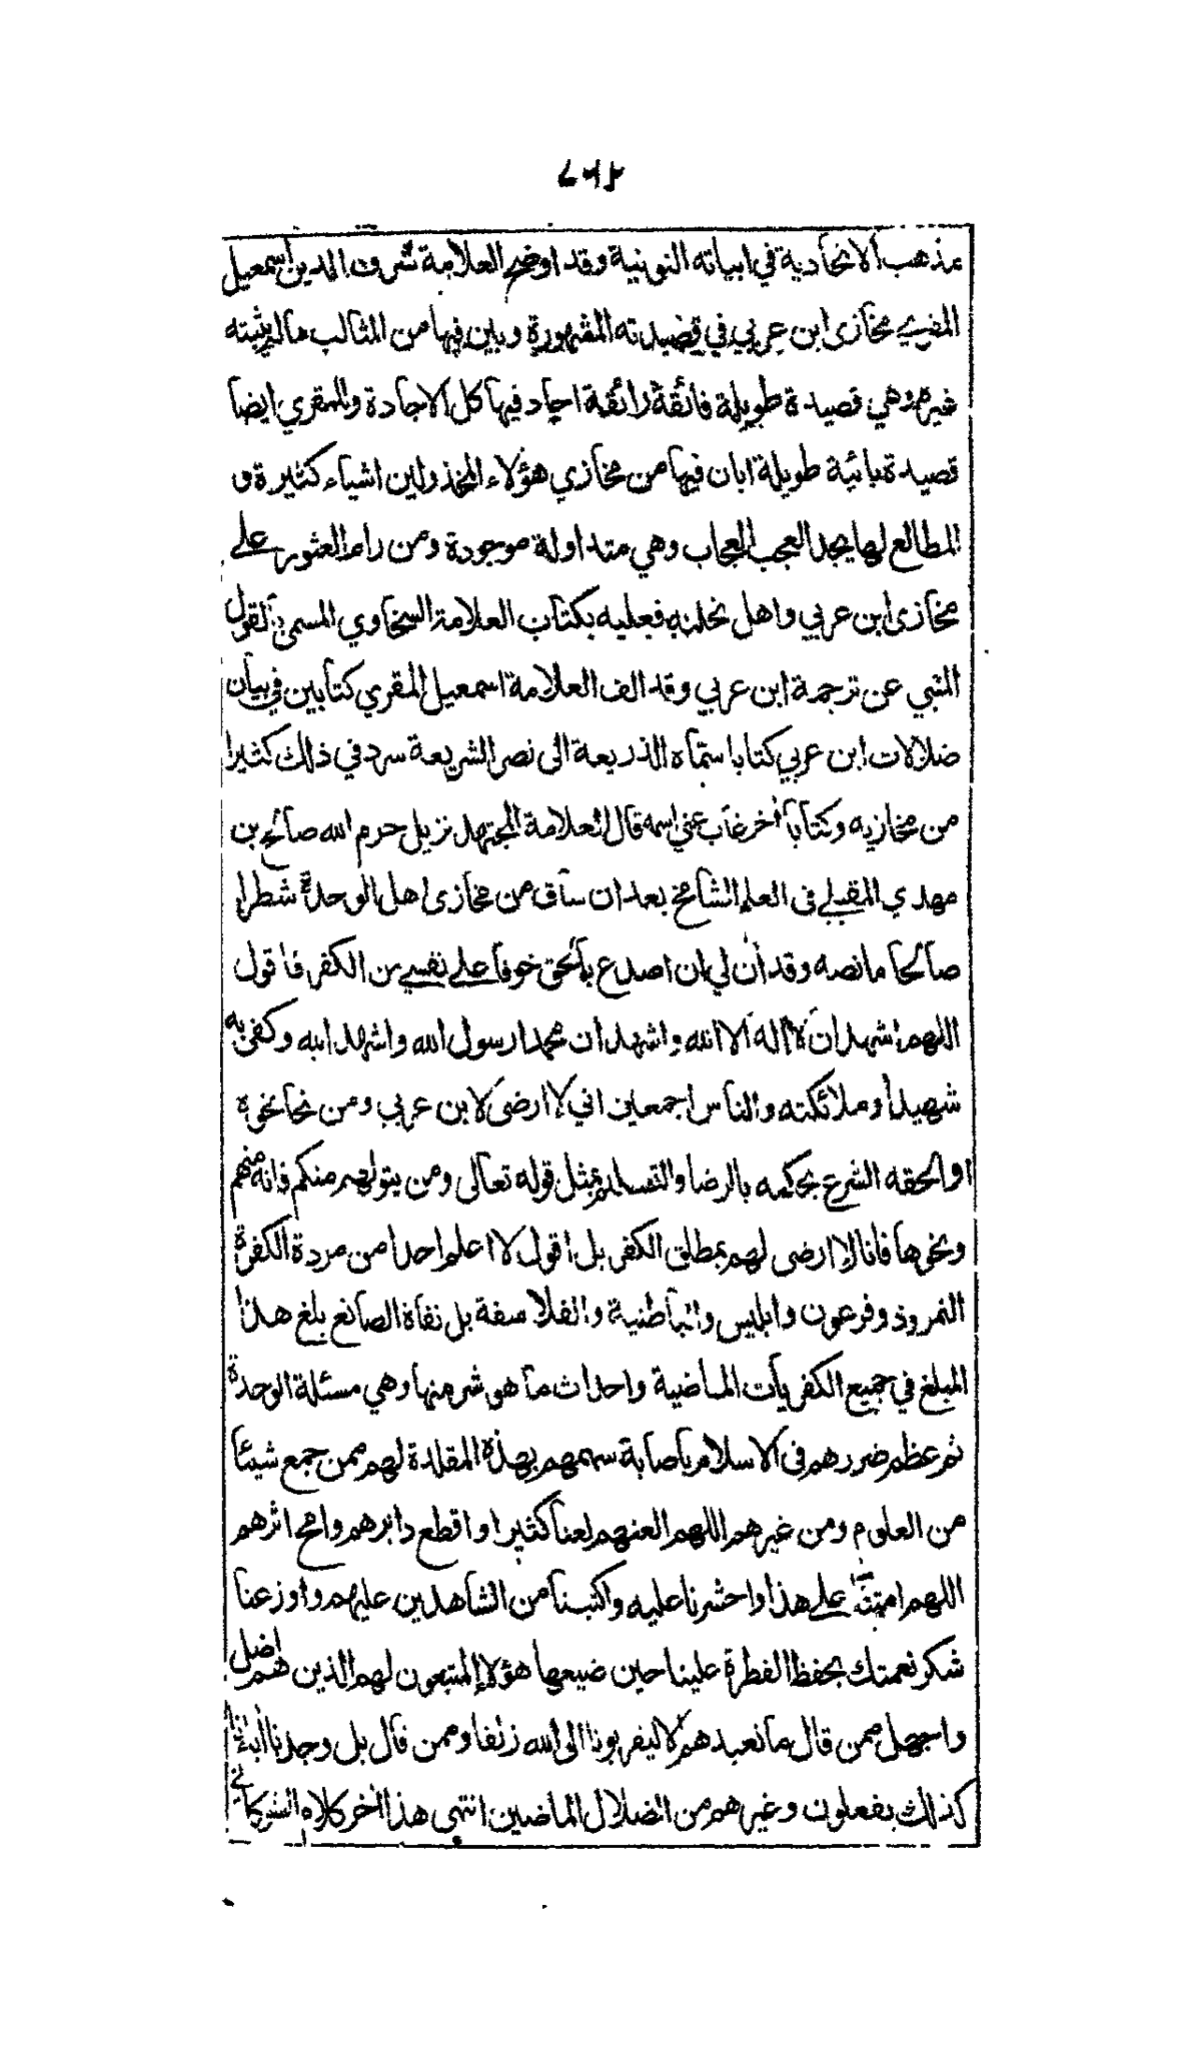 مذهب الاتحادية في ابياته النونية وقد اوضح العلامة شرف الدين اسمعيل
المقري مخازى ابن عربي في قصيدته المشهورة وبين فيها من المثالب مالم يثبته
غيره وهي قصيدة طويلة فائقة رائقة اجاد فيها كل الاجادة وللمقري ايضا
قصيدة بائية طويلة ابان فيها من مخازي هؤلاء المخذولين اشياء كثيرة و
المطالع لها يجد العجب العجاب وهي متداولة موجودة ومن رام العثور على
مخازى ابن عربي واهل نحلته فعليه بكتاب العلامة السخاوي المسمى بالقول
المنبي عن ترجمة ابن عربي وقد الف العلامة اسمعيل المقري كتابين في بيان
ضلالات ابن عربي كتابا سماه الذريعة الى نصر الشريعة سرد في ذلك كثيرا
من مخازيه وكتابا آخر غاب عني اسمه قال العلامة المجتهد نزيل حرم الله صالح بن
مهدي المقبلي فى العلم الشامخ بعد ان ساق من مخازى اهل الوحدة شطرا
صالحا مانصه وقد آن لي ان اصدع بالحق خوفا على نفسي من الكفر فاقول
اللهم اشهد ان لا اله الا الله واشهد ان محمدا رسول الله واشهد الله وكفى به
شهيدا وملائكته والناس اجمعين اني لا ارضى لابن عربي ومن نحا نحوه
او الحقه الشرع بحكمه بالرضا والتسليم بمثل قوله تعالى ومن يتولهم منكم فانه منهم
ونحوها فانا لا ارضى لهم بمطلق الكفر بل اقول لا اعلم احدا من مردة الكفرة
النمروذ وفرعون وابليس والباطنية والفلاسفة بل نفاة الصانع بلغ هذا
المبلغ في جميع الكفريات الماضية واحداث ما هو شر منها وهي مسئلة الوحدة
ثم عظم ضررهم فى الاسلام باصابة سهمهم بهذه المقلدة لهم ممن جمع شيئا
من العلوم ومن غيرهم اللهم العنهم لعنا كثيرا واقطع دابرهم وامح اثرهم
اللهم امتنا على هذا واحشرنا عليه واكتبنا من الشاهدين عليهم واوزعنا
شكر نعمتك بحفظ الفطرة علينا حين ضيعها هؤلا المتبعون لهم الذين هم اضل
واجهل ممن قال ما نعبدهم الا ليقربونا الى الله زلفا وممن قال بل وجدنا آباءنا
كذلك يفعلون وغيرهم من الضلال الماضين انتهى هذا آخر كلام الشوكاني